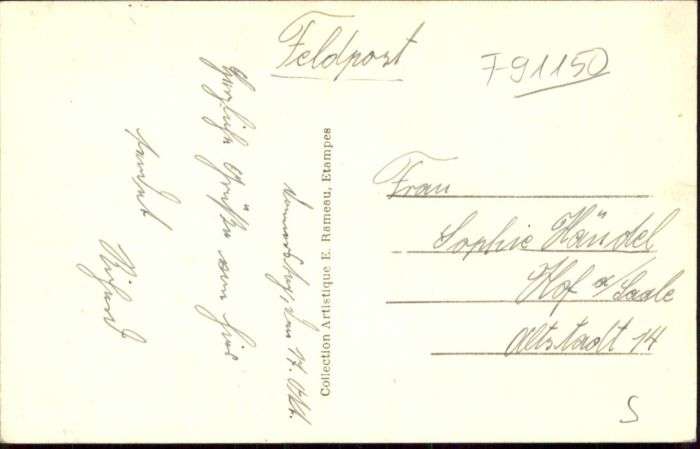 Feldpost
F91150
Donnerstag, den 17. Okt.
Herzliche Grüße von hier
sendet
Richard
Collection Artistique E. Rameau, Etampes
Frau
Sophie Händel
Hof a/Saale
Altstadt 14
S